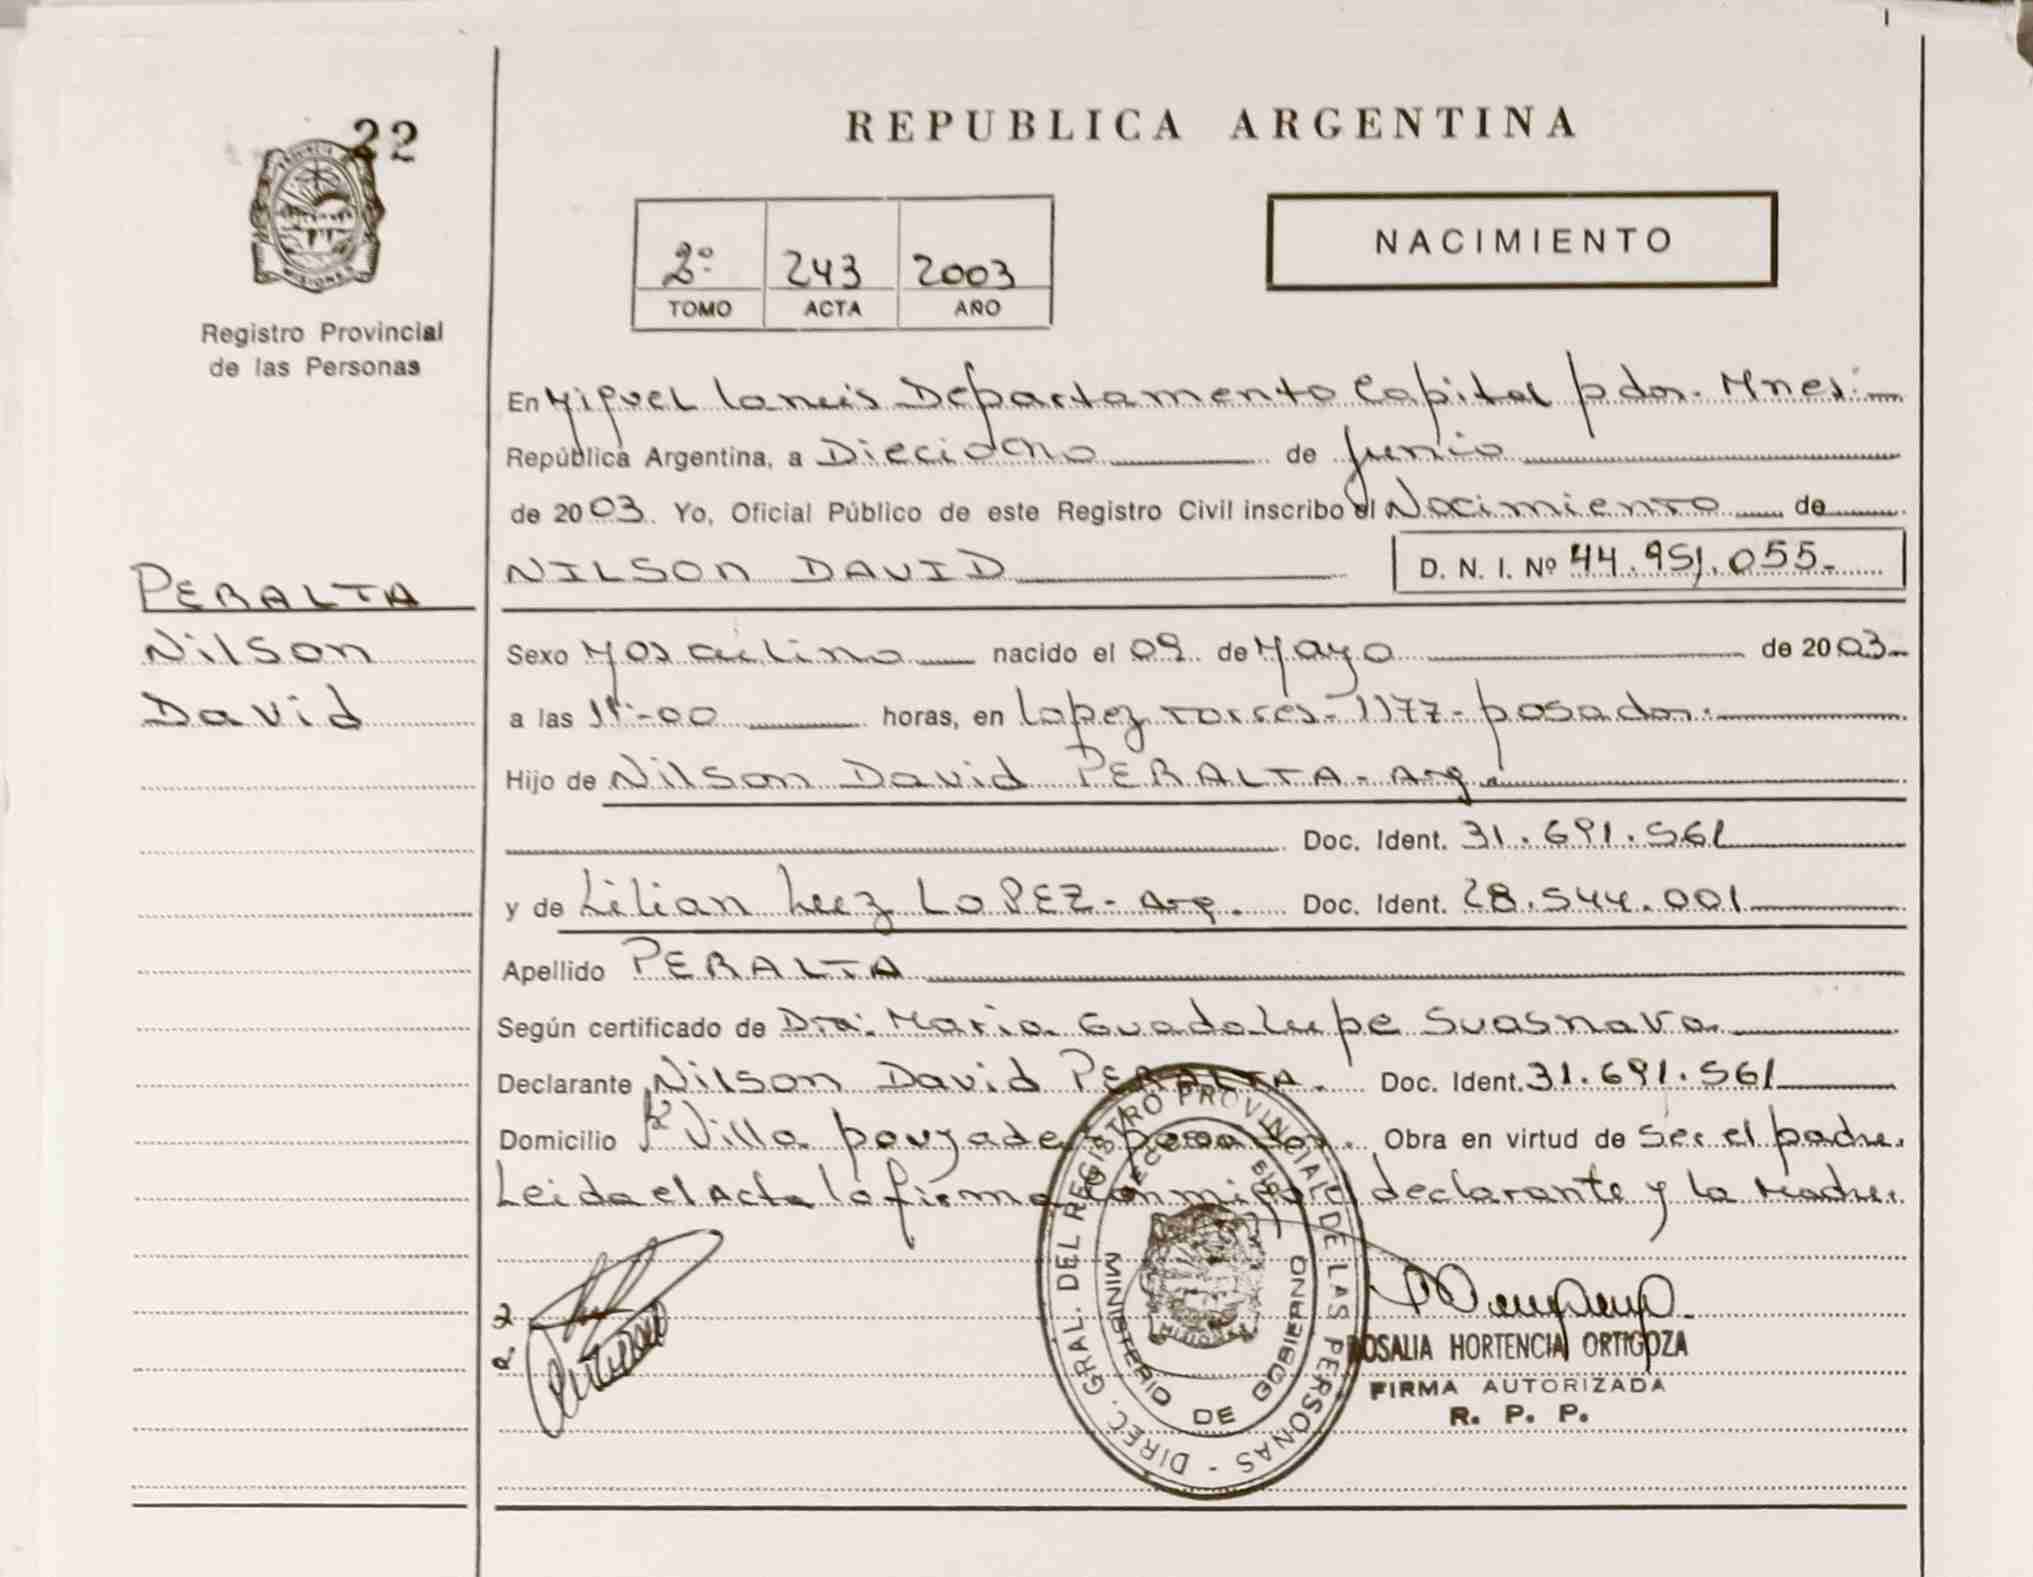 22
PROVINCIA
MISIONES
Registro Provincial
de las Personas
REPUBLICA ARGENTINA
2º 243 2003
TOMO ACTA AÑO
NACIMIENTO
En Miguel Lanús Departamento Capital pdas. Mnes.
República Argentina, a Dieciocho de Junio
de 2003. Yo, Oficial Público de este Registro Civil inscribo el Nacimiento de
NILSON DAVID D. N. I. Nº 44.951.055.-
PERALTA
Nilson
David
Sexo Masculino nacido el 09 de Mayo de 2003-
a las 11:-00 horas, en Lopez Torres-1177-posadas.
Hijo de Nilson David PERALTA- Arg.
Doc. Ident. 31.691.561
y de Lilian Luz LOPEZ- Arg. Doc. Ident. 28.544.001
Apellido PERALTA
Según certificado de Dra: Maria Guadalupe Suasnava
Declarante Nilson David PERALTA. Doc. Ident. 31.691.561
Domicilio Villa Obra en virtud de Ser el padre.
Leida el Acta la firma conmigo el declarante y la Madre.
DIREC. GRAL. DEL REGISTRO PROVINCIAL DE LAS PERSONAS -
MINISTERIO DE GOBIERNO
MISIONES
ROSALIA HORTENCIA ORTIGOZA
FIRMA AUTORIZADA
R. P. P.